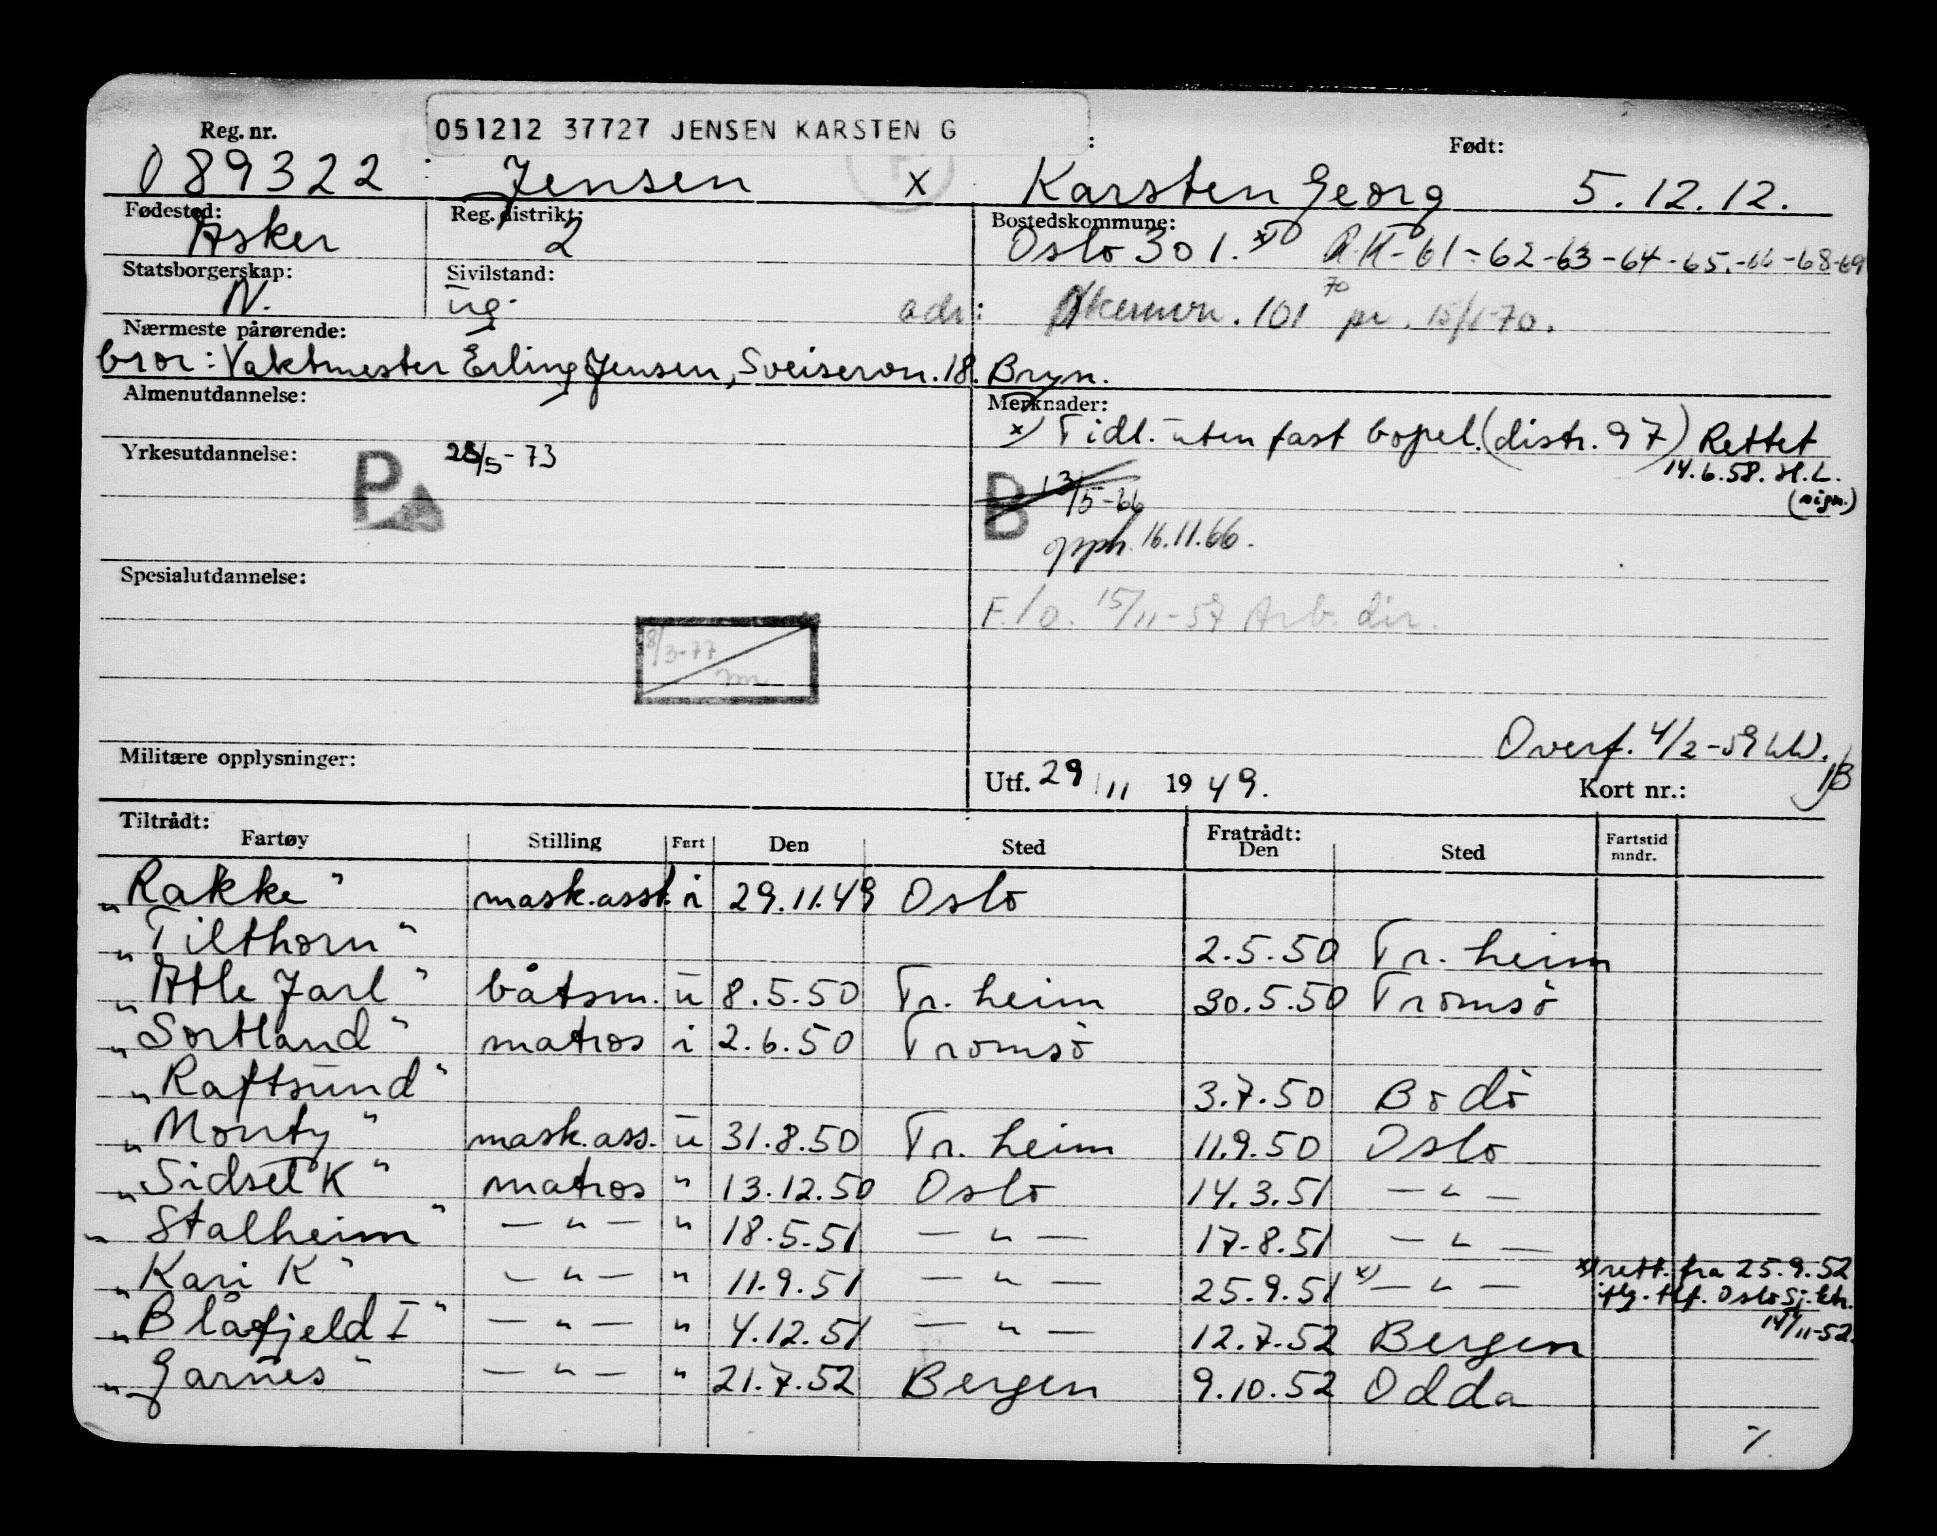 051212 37727 JENSEN KARSTEN G
Reg. nr. : : Født:
089322 Jensen x Karsten Georg 5.12.12.
Fødested: Reg. distrikt: Bostedskommune:
Asker 2 Oslo 301. x) R.K-61-62-63-64-65-66-68-69
70
Statsborgerskap: Sivilstand:
N. ug. adr: 101 pr. 15/1-70.
Nærmeste pårørende:
bror: Vaktmester Erling Jensen, Sveiservn. 18. Bryn.
Almenutdannelse: Merknader:
x) Tidl. uten fast bopel. (distr. 97) Rettet
14.6.58. H.L.
(sign.)
Yrkesutdannelse: P 28/5-73
B 13/5-66
opph. 16.11.66.
Spesialutdannelse:
F./o. 15/11-57 Arb. dir.
8/3-77
Overf. 4/2-59
Militære opplysninger: Utf. 29/11 1949. Kort nr.:
Tiltrådt: Fratrådt:
Fartøy Stilling Fart Den Sted Den Sted Fartstid mndr.
"Rakke" mask.asst. i 29.11.49 Oslo
"Tilthorn" 2.5.50 Tr. heim
"Atle Jarl" båtsm. u 8.5.50 Tr. heim 30.5.50 Tromsö
"Sortland" matros i 2.6.50 Tromsö
"Raftsund" 3.7.50 Bodö
"Monty" mask.ass. u 31.8.50 Tr. heim 11.9.50 Oslo
"Sidsel K" matros " 13.12.50 Oslo 14.3.51 — " —
"Stalheim" — " — " 18.5.51 — " — 17.8.51 — " —
"Kari K" — " — " 11.9.51 — " — 25.9.51 x) — " — x) rett. fra 25.9.52
iflg. tlf. Oslo Sj.ktr.
14/11-52.
"Blåfjeld I" — " — " 4.12.51 — " — 12.7.52 Bergen
"Garnes" — " — " 21.7.52 Bergen 9.10.52 Odda